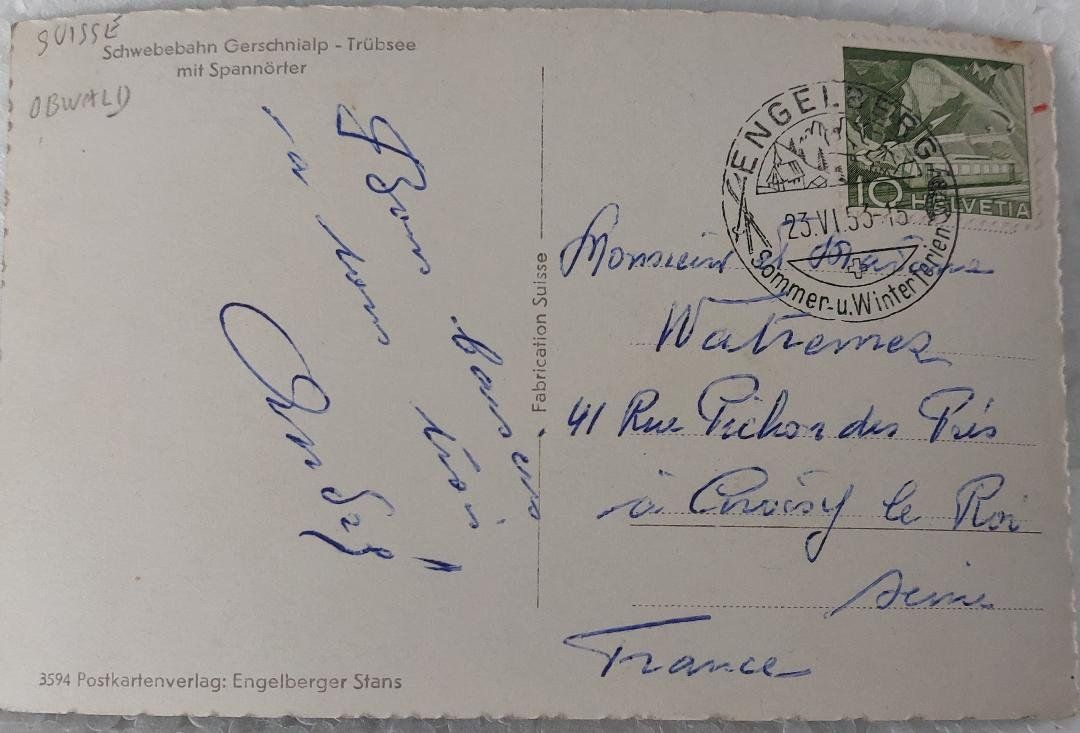 SUISSE
OBWALD
Schwebebahn Gerschnialp - Trübsee
mit Spannörter
Bons baisers
à tous trois
Fabrication Suisse
ENGELBERG
23.VI.53-15
Sommer-u.Winterferien
10 HELVETIA
Monsieur et Madame
Watremez
41 Rue Pichon des Prés
à Choisy le Roi
Seine
France
3594 Postkartenverlag: Engelberger Stans